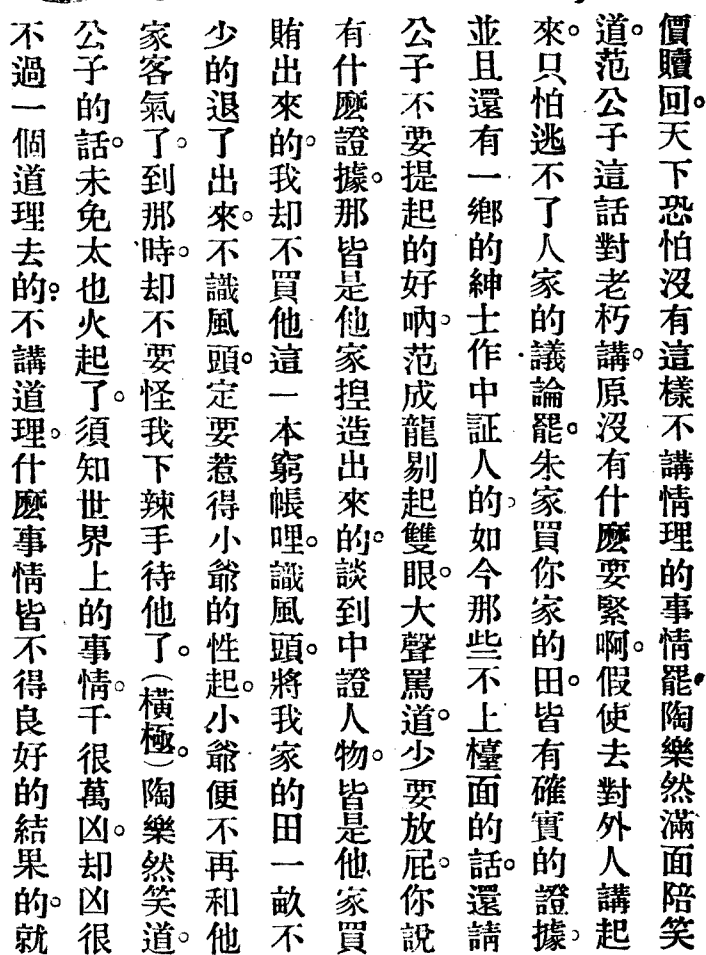 價贖回。天下恐怕沒有這樣不講情理的事情罷。陶樂然滿面陪笑
道。范公子這話對老朽講。原沒有什麽要緊啊。假使去對外人講起
來。只怕逃不了人家的議論罷。朱家買你家的田。皆有確實的證據。
並且還有一鄉的紳士作中証人的。如今那些不上檯面的話。還請
公子不要提起的好吶。范成龍剔起雙眼。大聲罵道。少要放屁。你說
有什麽證據。那皆是他家揑造出來的。談到中證人物。皆是他家買
賄出來的。我却不買他這一本窮帳哩。識風頭。將我家的田一畝不
少的退了出來。不識風頭。定要惹得小爺的性起。小爺便不再和他
家客氣了。到那時。却不要怪我下辣手待他了。(橫極)陶樂然笑道。
公子的話。未免太也火起了。須知世界上的事情。千很萬凶。却凶很
不過一個道理去的。不講道理。什麽事情皆不得良好的結果的。就